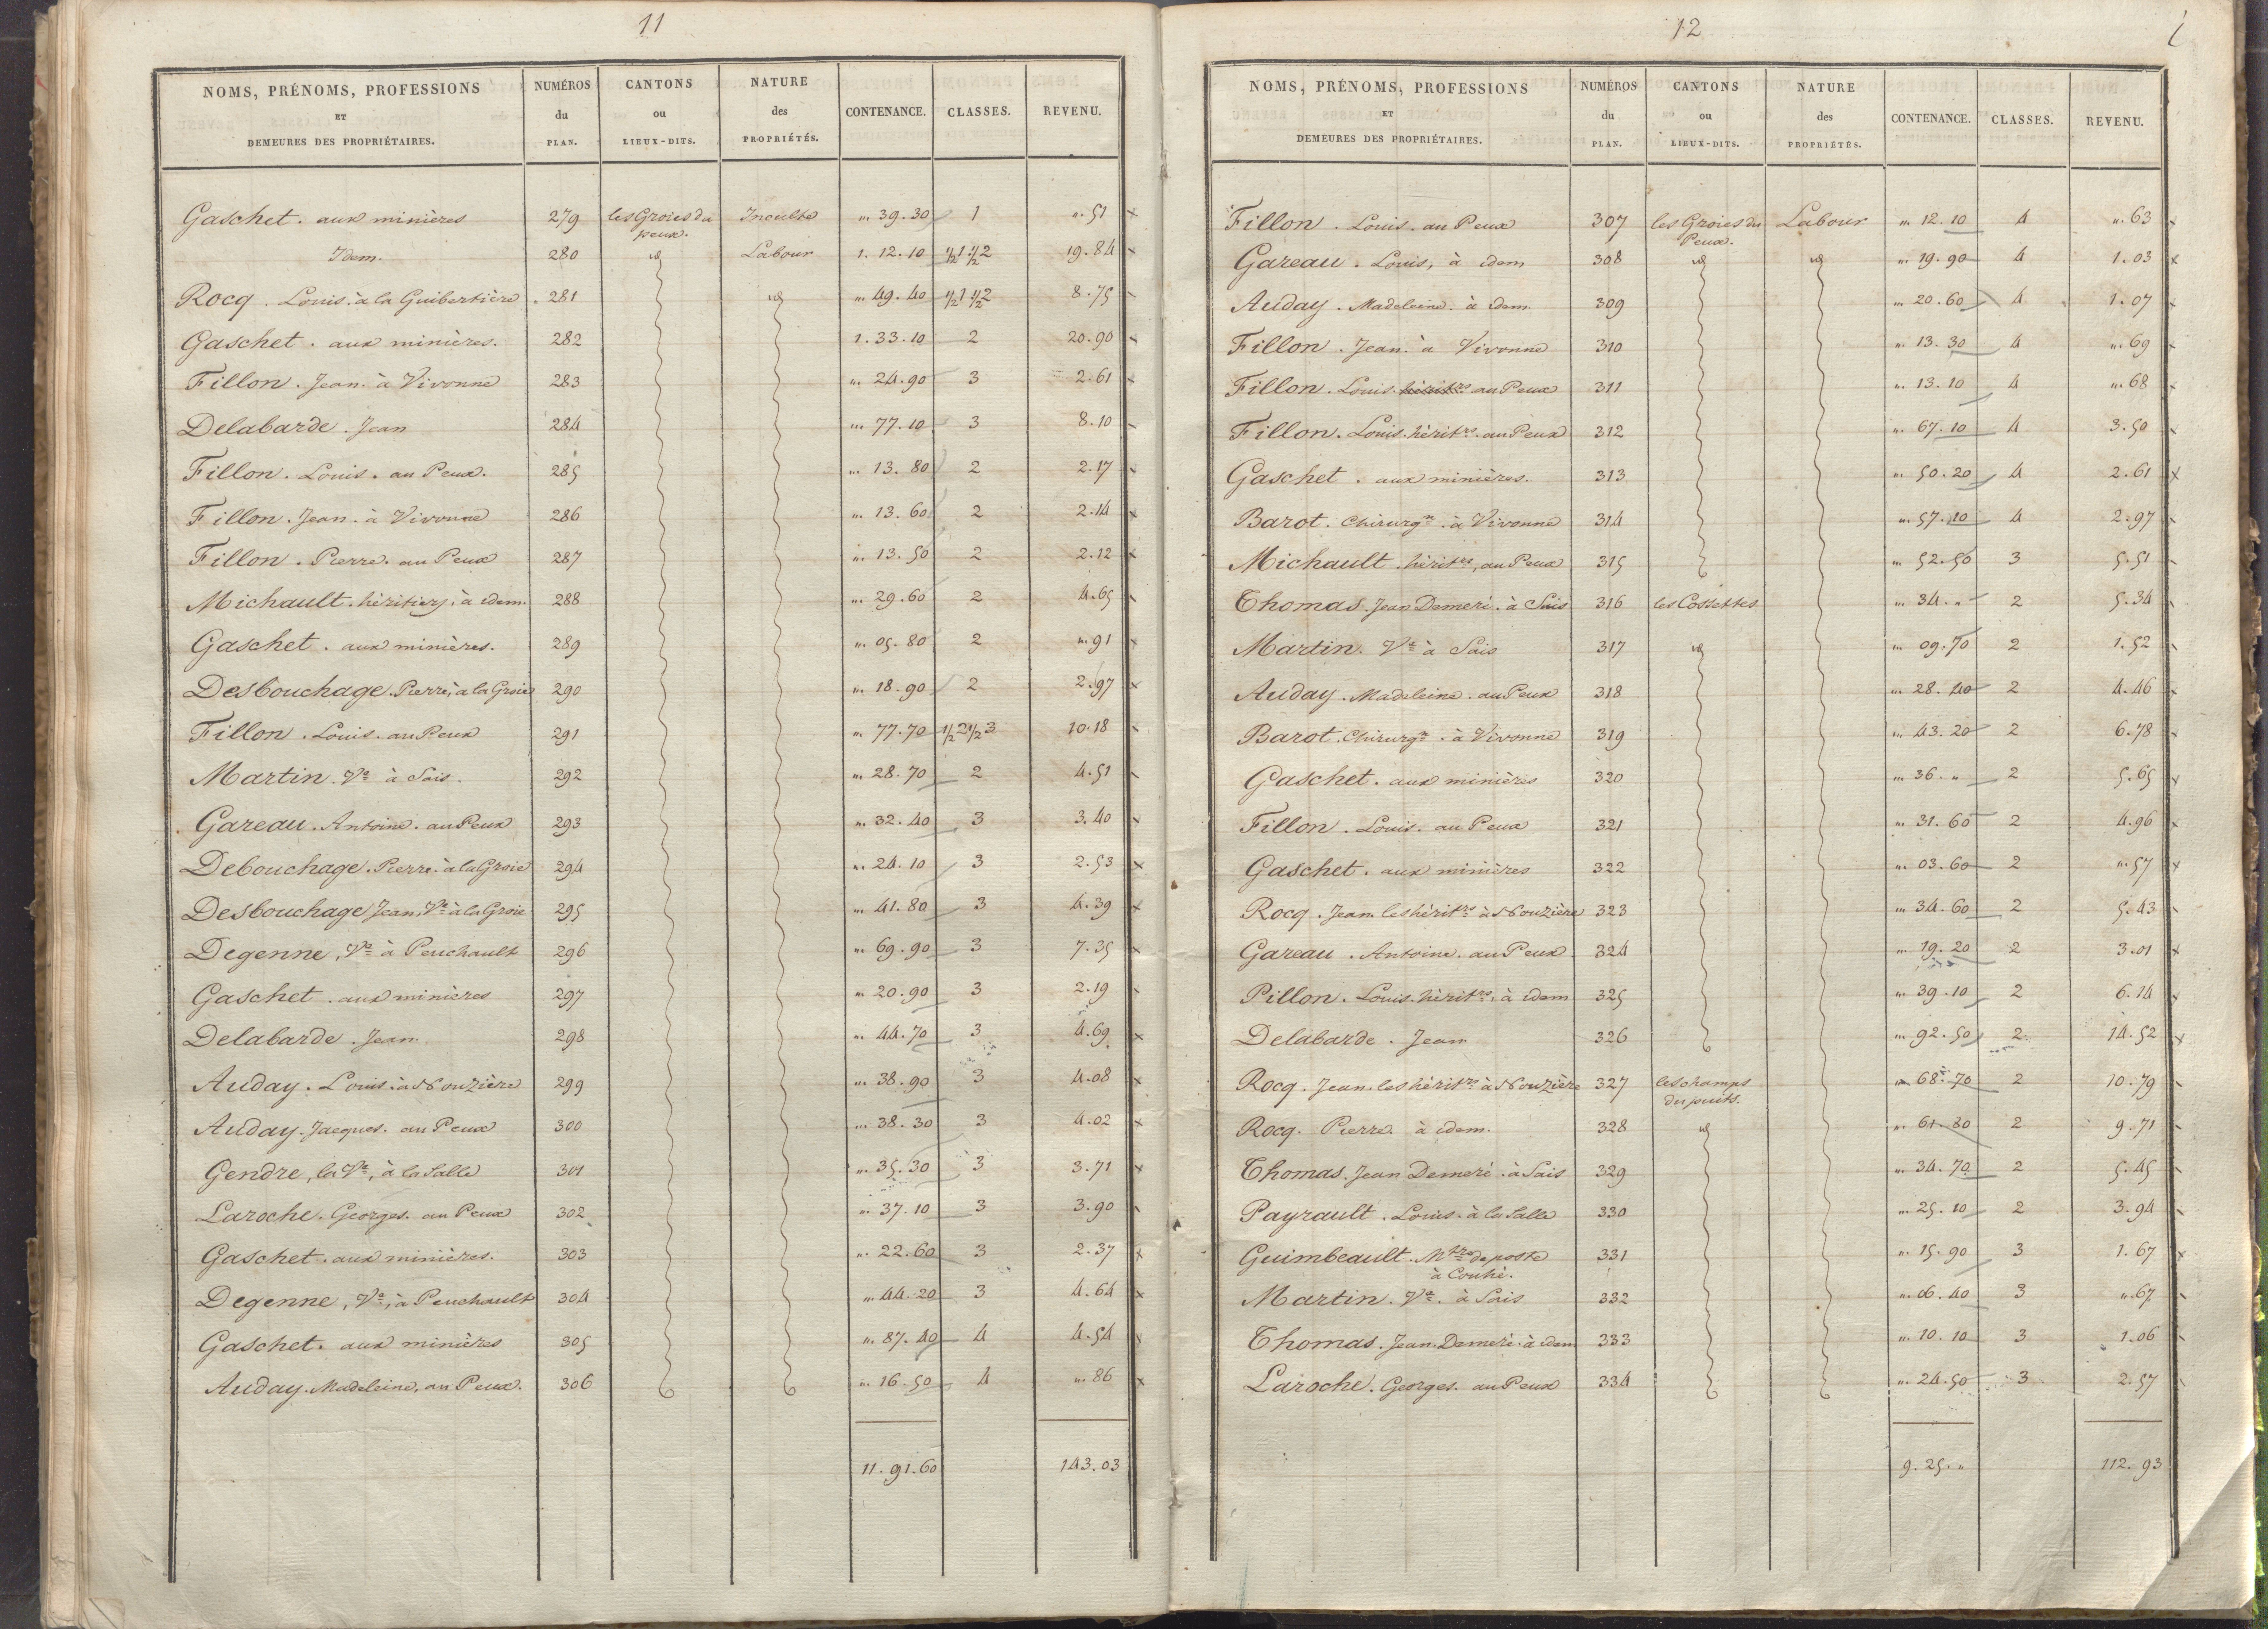 11
NOMS, PRÉNOMS, PROFESSIONS ET DEMEURES DES PROPRIÉTAIRES. NUMÉROS du PLAN. CANTONS ou LIEUX-DITS. NATURE des PROPRIÉTÉS. CONTENANCE. CLASSES. REVENU.
Gaschet. aux minières 279 les Groies du peux. Inculte „. 39. 30 1 „. 51
Idem. 280 id Labour 1. 12. 10 ½1 ½2 19. 84
Rocq. Louis. à la Guibertière 281 id „. 49. 40 ½1 ½2 8. 75
Gaschet. aux minières. 282 1. 33. 10 2 20. 90
Fillon. Jean. à Vivonne 283 „. 24. 90 3 2. 61
Delabarde. Jean 284 „. 77. 10 3 8. 10
Fillon. Louis. au Peux. 285 „. 13. 80 2 2. 17
Fillon. Jean. à Vivonne 286 „. 13. 60 2 2. 14
Fillon. Pierre. au Peux 287 „. 13. 50 2 2. 12
Michault. héritiers, à idem. 288 „. 29. 60 2 4. 65
Gaschet. aux minières. 289 „. 05. 80 2 „. 91
Desbouchage. Pierre, à la Groie 290 „. 18. 90 2 2. 97
Fillon. Louis. au Peux 291 „. 77. 70 ½2 ½3 10. 18
Martin. Ve à Sais. 292 „. 28. 70 2 4. 51
Gareau. Antoine. au Peux 293 „. 32. 40 3 3. 40
Debouchage. Pierre. à la Groie 294 „. 24. 10 3 2. 53
Desbouchage, Jean, Ve à la Groie 295 „. 41. 80 3 4. 39
Degenne, Ve à Peuchault 296 „. 69. 90 3 7. 35
Gaschet. aux minières 297 „. 20. 90 3 2. 19
Delabarde. Jean. 298 „. 44. 70 3 4. 69
Auday. Louis. à Nouzière 299 „. 38. 90 3 4. 08
Auday. Jacques. au Peux 300 „. 38. 30 3 4. 02
Gendre, la Ve, à la Salle 301 „. 35. 30 3 3. 71
Laroche. Georges. au Peux 302 „. 37. 10 3 3. 90
Gaschet. aux minières. 303 „. 22. 60 3 2. 37
Degenne, Ve, à Peuchault 304 „. 44. 20 3 4. 64
Gaschet. aux minières 305 „. 87. 40 4 4. 54
Auday. Madeleine, au Peux. 306 „. 16. 50 4 „. 86
11. 91. 60 143. 03
12
NOMS, PRÉNOMS, PROFESSIONS ET DEMEURES DES PROPRIÉTAIRES. NUMÉROS du PLAN. CANTONS ou LIEUX-DITS. NATURE des PROPRIÉTÉS. CONTENANCE. CLASSES. REVENU.
Fillon. Louis. au Peux 307 les Groies du Peux. Labour „. 12. 10 4 „. 63
Gareau. Louis, à idem 308 id id „. 19. 90 4 1. 03
Auday. Madeleine. à idem. 309 „. 20. 60 4 1. 07
Fillon. Jean. à Vivonne 310 „. 13. 30 4 „. 69
Fillon. Louis. héritrs au Peux 311 „. 13. 10 4 „. 68
Fillon. Louis. héritrs. au Peux 312 „. 67. 10 4 3. 50
Gaschet. aux minières. 313 „. 50. 20 4 2. 61
Barot. Chirurgn. à Vivonne 314 „. 57. 10 4 2. 97
Michault. héritrs, au Peux 315 „. 52. 50 3 5. 51
Thomas. Jean Demeré. à Sais 316 les Cossettes „. 34. „ 2 5. 34
Martin. Ve à Sais 317 id „. 09. 70 2 1. 52
Auday. Madeleine. au Peux 318 „. 28. 40 2 4. 46
Barot. Chirurgn. à Vivonne 319 „. 43. 20 2 6. 78
Gaschet. aux minières 320 „. 36. „ 2 5. 65
Fillon. Louis. au Peux 321 „. 31. 60 2 4. 96
Gaschet. aux minières 322 „. 03. 60 2 „. 57
Rocq. Jean. les héritrs à Nouzière 323 „. 34. 60 2 5. 43
Gareau. Antoine. au Peux. 324 „. 19. 20 2 3. 01
Pillon. Louis. héritrs. à idem 325 „. 39. 10 2 6. 14
Delabarde. Jean 326 „. 92. 50 2 14. 52
Rocq. Jean. les héritrs à Nouzière 327 les champs du puits. „. 68. 70 2 10. 79
Rocq. Pierre. à idem. 328 id „. 61. 80 2 9. 71
Thomas. Jean Demeré. à Sais 329 „. 34. 70 2 5. 45
Payrault. Louis. à la Salle 330 „. 25. 10 2 3. 94
Guimbeault. Mtre de poste à Couhé. 331 „. 15. 90 3 1. 67
Martin. Ve. à Sais 332 „. 06. 40 3 „. 67
Thomas. Jean Demeré. à idem 333 „. 10. 10 3 1. 06
Laroche. Georges. au Peux 334 „. 24. 50 3 2. 57
9. 25. „ 112. 93